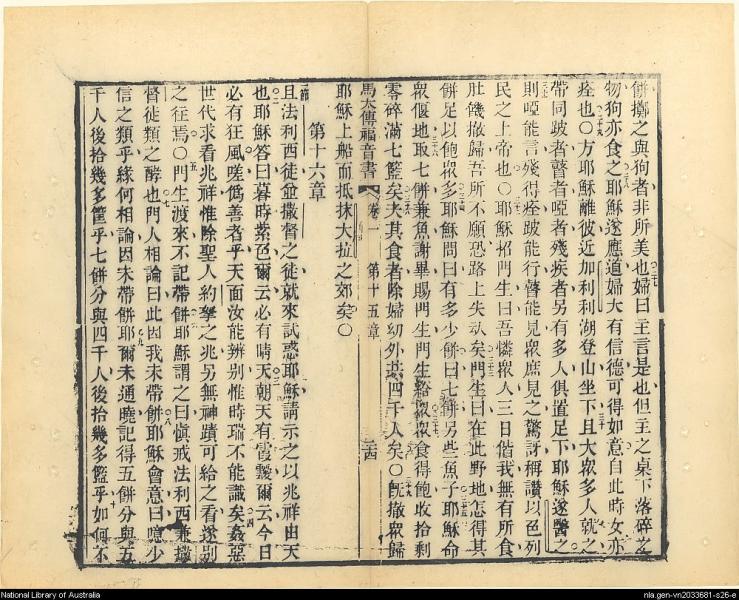 餅擲之與狗者非所美也婦曰主言是也但主之桌下落碎之
物狗亦食之耶穌遂應道婦大有信德可得如意自此時女亦
痊也〇方耶穌離彼近加利利湖登山坐下且大眾多人就之
帶同跛者瞽者啞者殘疾者另有多人俱置足下耶穌遂醫之
則啞能言殘得痊跛能行瞽能見眾庶見之驚訝稱讚以色列
民之上帝也〇耶穌招門生曰吾憐眾人三日偕我無有所食
肚饑撤歸吾所不願恐路上失㳄矣門生曰在此野地怎得其
餅足以飽眾多耶穌問曰有多少餅曰七餅另些魚子耶穌命
眾偃地取七餅兼魚謝畢賜門生門生給眾眾食得飽收拾剩
零碎滿七籃矣夫其食者除婦幼外共四千人矣〇旣撤眾歸
馬太傳福音書 卷一 第十五章 三四
耶穌上船而抵抹大拉之郊矣〇
第十六章
一節 且法利西徒並撒督之徒就來試惑耶穌請示之以兆祥由天
也耶穌答曰暮時紫色爾云必有晴天朝天有霞靉爾云今日
必有狂風嗟僞善者乎天面汝能辨别惟時瑞不能識矣姦惡
世代求看兆祥惟除聖人約拏之兆另無神蹟可給之看遂別
之往焉〇門生渡來不記帶餅耶穌謂之曰愼戒法利西兼撒
督徒類之酵也門人相論曰此因我未帶餅耶穌會意曰噫少
信之類乎緣何相論因未帶餅耶爾未通曉記得五餅分與五
千人後拾幾多筐乎七餅分與四千人後拾幾多籃乎如何不
National Library of Australia
nla.gen-vn2033681-s26-e